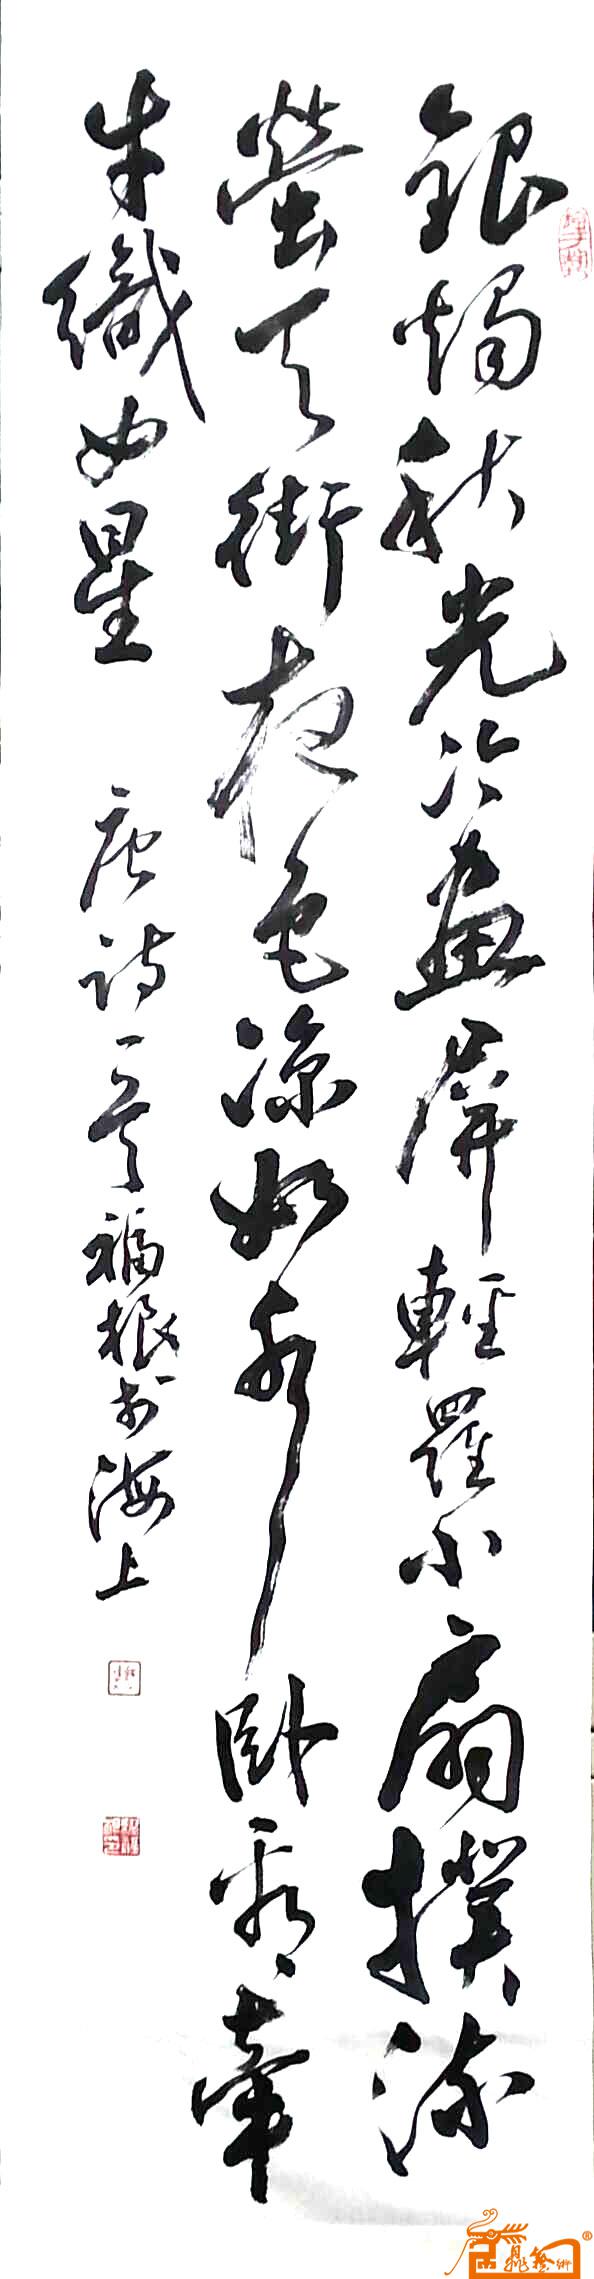 銀燭秋光冷畫屏輕羅小扇撲流
螢天街夜色涼如水卧看牽
牛織女星 唐詩一首福根於海上